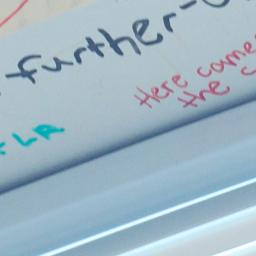 further-
Here come
the
LA